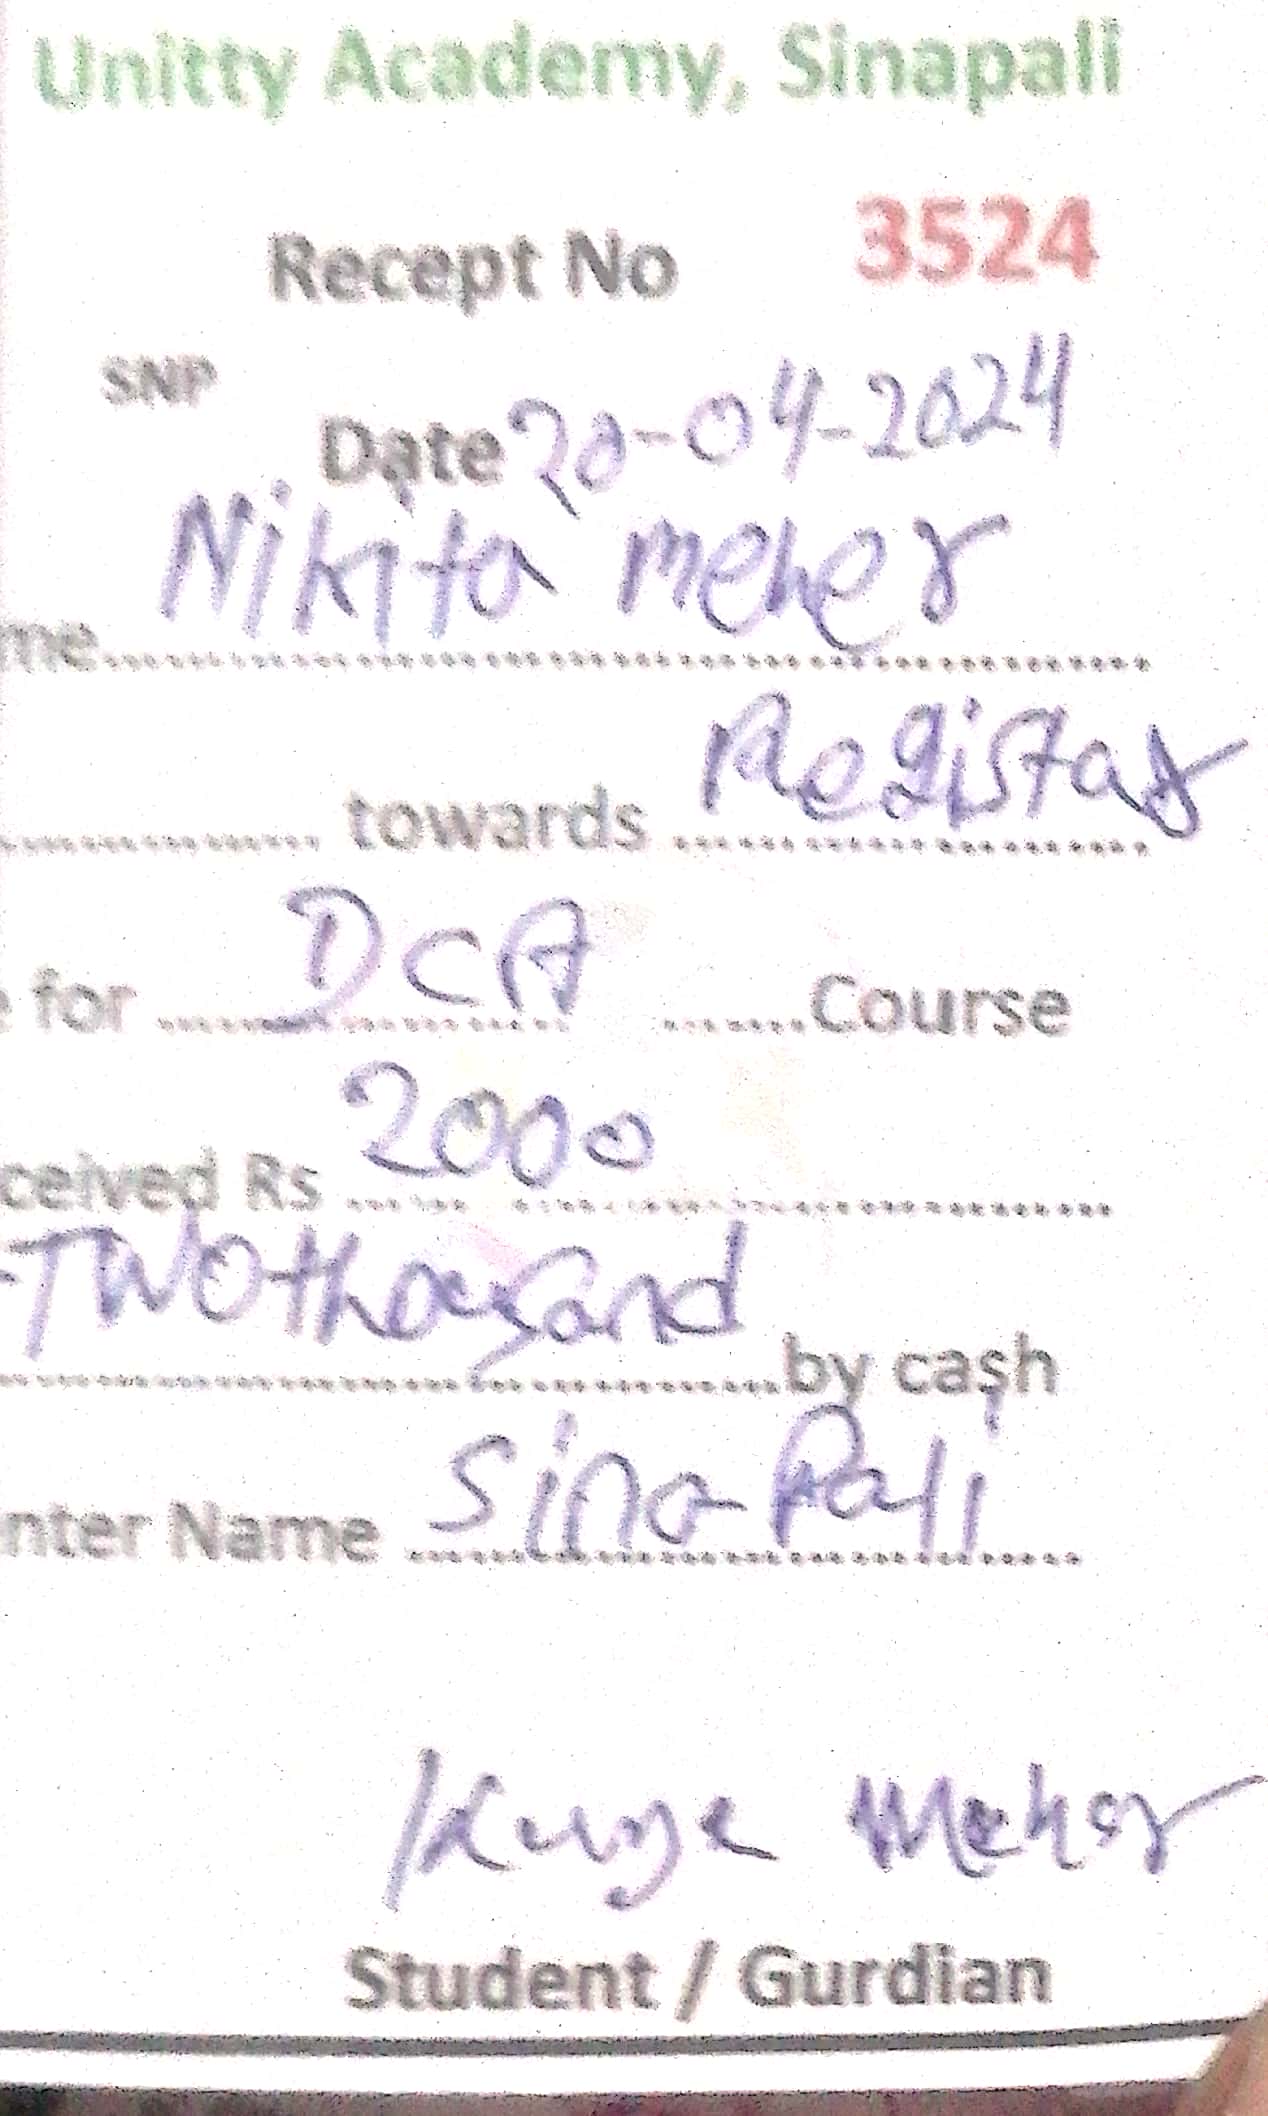 Unitty Academy, Sinapali
Recept No 3524
SNP
Date 20-04-2024
me Nikita meher
towards Registar
for DCA Course
ceived Rs 2000
Two thousand by cash
nter Name Sinapali
Meher
Student / Gurdian